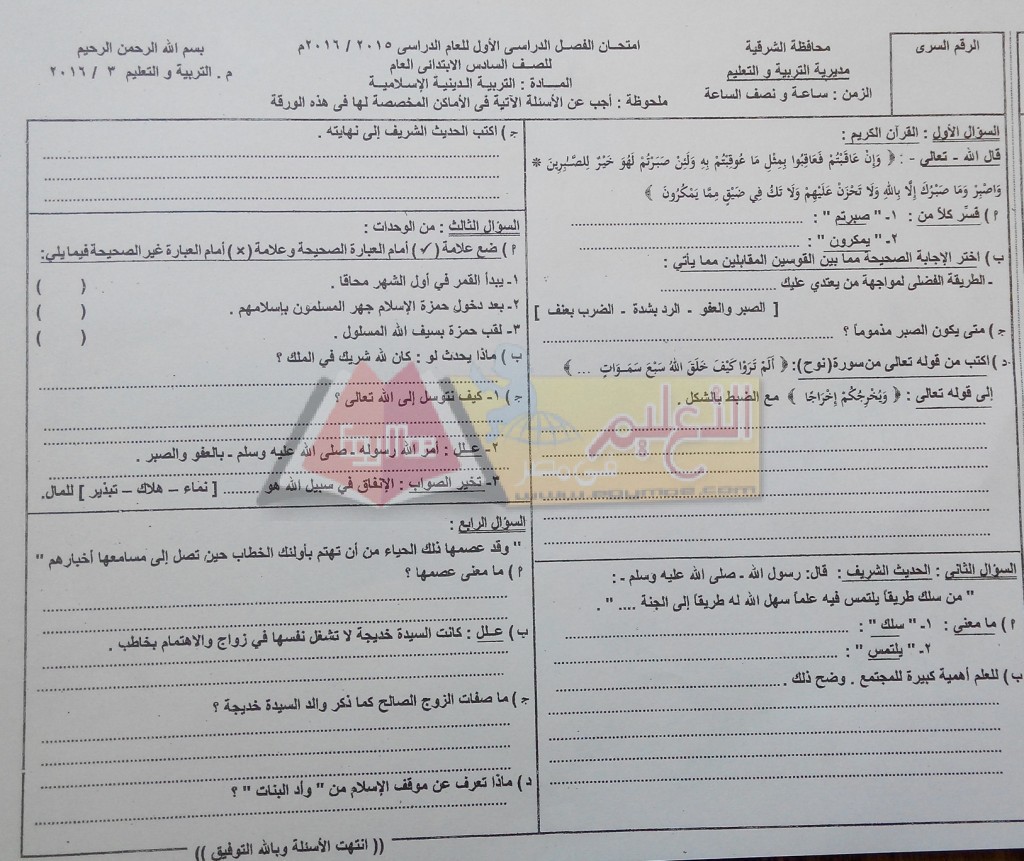 الرقم السرى
محافظة الشرقية
مديرية التربية و التعليم
الزمن : ساعة و نصف الساعة
امتحان الفصل الدراسى الأول للعام الدراسى ٢٠١٥ / ٢٠١٦م
للصف السادس الابتدائى العام
المادة : التربية الدينية الإسلامية
ملحوظة : أجب عن الأسئلة الآتية فى الأماكن المخصصة لها فى هذه الورقة
بسم الله الرحمن الرحيم
م . التربية و التعليم ٣ / ٢٠١٦
السؤال الأول : القرآن الكريم :
قال الله - تعالى - : ﴿ وَإِنْ عَاقَبْتُمْ فَعَاقِبُوا بِمِثْلِ مَا عُوقِبْتُمْ بِهِ وَلَئِنْ صَبَرْتُمْ لَهُوَ خَيْرٌ لِلصَّابِرِينَ *
وَاصْبِرْ وَمَا صَبْرُكَ إِلَّا بِاللهِ وَلَا تَحْزَنْ عَلَيْهِمْ وَلَا تَكُ فِي ضَيْقٍ مِمَّا يَمْكُرُونَ ﴾
أ ) فسِّر كلاً من : ١- " صبرتم " :
٢- " يمكرون " :
ب ) اختر الإجابة الصحيحة مما بين القوسين المقابلين مما يأتي :
- الطريقة الفضلى لمواجهة من يعتدي عليك
[ الصبر والعفو - الرد بشدة - الضرب بعنف ]
ج ) متى يكون الصبر مذموماً ؟
د ) اكتب من قوله تعالى من سورة (نوح): ﴿ أَلَمْ تَرَوْا كَيْفَ خَلَقَ اللهُ سَبْعَ سَمَـوَاتٍ ... ﴾
إلى قوله تعالى : ﴿ وَيُخْرِجُكُمْ إِخْرَاجًا ﴾ مع الضبط بالشكل .
السؤال الثانى : الحديث الشريف : قال: رسول الله - صلى الله عليه وسلم - :
" من سلك طريقاً يلتمس فيه علماً سهل الله له طريقاً إلى الجنة .... " .
أ ) ما معنى : ١- " سلك " :
٢- " يلتمس " :
ب ) للعلم أهمية كبيرة للمجتمع . وضح ذلك .
ج ) اكتب الحديث الشريف إلى نهايته .
السؤال الثالث : من الوحدات :
أ ) ضع علامة ( ✓ ) أمام العبارة الصحيحة وعلامة ( × ) أمام العبارة غير الصحيحة فيما يلي:
١- يبدأ القمر في أول الشهر محاقا . ( )
٢- بعد دخول حمزة الإسلام جهر المسلمون بإسلامهم . ( )
٣- لقب حمزة بسيف الله المسلول . ( )
ب ) ماذا يحدث لو : كان لله شريك في الملك ؟
ج ) ١- كيف نتوسل إلى الله تعالى ؟
٢- علل : أمر الله رسوله - صلى الله عليه وسلم - بالعفو والصبر .
٣- تخير الصواب : الإنفاق في سبيل الله هو ........ [ نماء – هلاك – تبذير ] للمال.
السؤال الرابع :
" وقد عصمها ذلك الحياء من أن تهتم بأولئك الخطاب حين تصل إلى مسامعها أخبارهم "
أ ) ما معنى عصمها ؟
ب ) علل : كانت السيدة خديجة لا تشغل نفسها في زواج والاهتمام بخاطب .
ج ) ما صفات الزوج الصالح كما ذكر والد السيدة خديجة ؟
د ) ماذا تعرف عن موقف الإسلام من " وأد البنات " ؟
(( انتهت الأسئلة وبالله التوفيق ))
التعليم
فى مصر
EgyMoe
www.egymoe.com